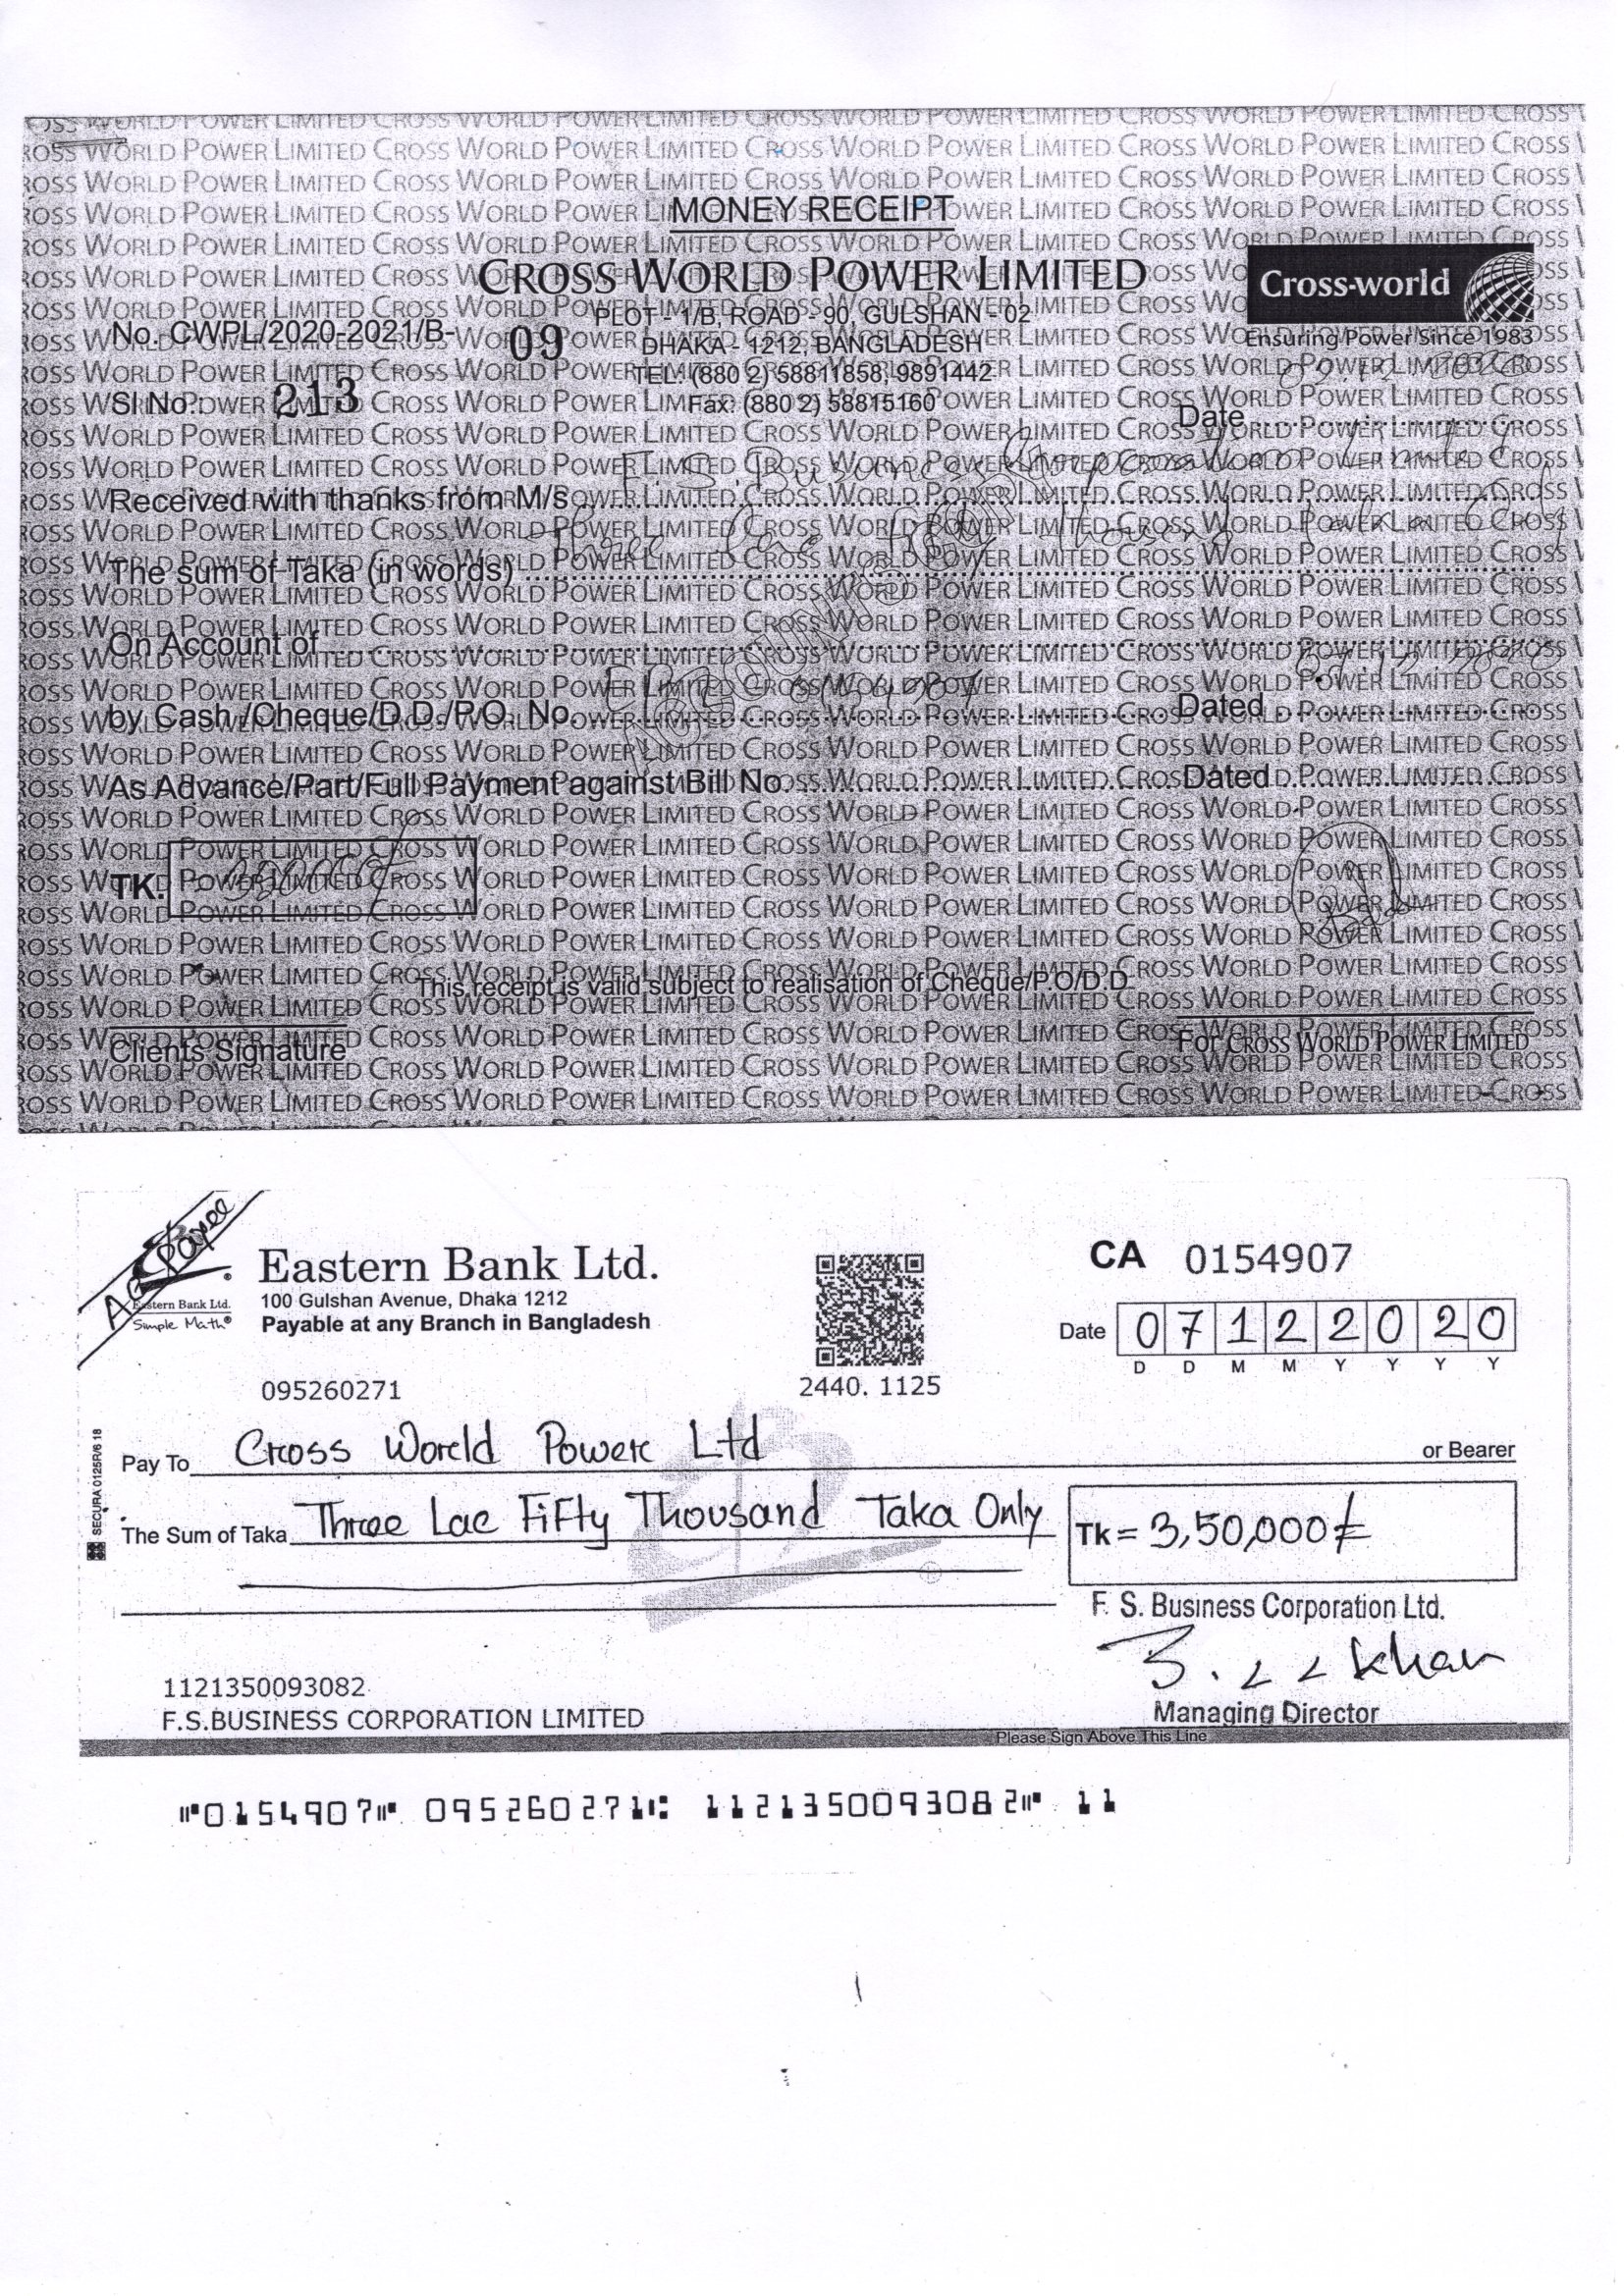 MONEY RECEIPT
CROSS WORLD POWER LIMITED
Cross-world
Ensuring Power Since 1983
PLOT - 1/B, ROAD - 90, GULSHAN - 02
No. CWPL/2020-2021/B- 09
DHAKA - 1212, BANGLADESH
TEL: (880 2) 58811858, 9891442
Sl No.: 213
Fax: (880 2) 58815160
Date
Received with thanks from M/s F.S. Business Corporation Limited
The sum of Taka (in words) Three Lac Fifty Thousand Taka Only
On Account of
by Cash /Cheque/D.D./P.O. No. 0154907 Dated 07.12.2020
As Advance/Part/Full Payment against Bill No. Dated
TK.
This receipt is valid subject to realisation of Cheque/P.O/D.D
Clients Signature
For CROSS WORLD POWER LIMITED
A/C Payee
Eastern Bank Ltd.
Simple Math®
Eastern Bank Ltd.
100 Gulshan Avenue, Dhaka 1212
Payable at any Branch in Bangladesh
CA 0154907
Date 07122020
D D M M Y Y Y Y
095260271
2440. 1125
SECURA 0125R/6 18
Pay To Cross World Power Ltd or Bearer
The Sum of Taka Three Lac Fifty Thousand Taka Only
Tk = 3,50,000/=
F. S. Business Corporation Ltd.
Khan
Managing Director
1121350093082
F.S.BUSINESS CORPORATION LIMITED
Please Sign Above This Line
⑈0154907⑈ 095260271⑆ 1121350093082⑈ 11